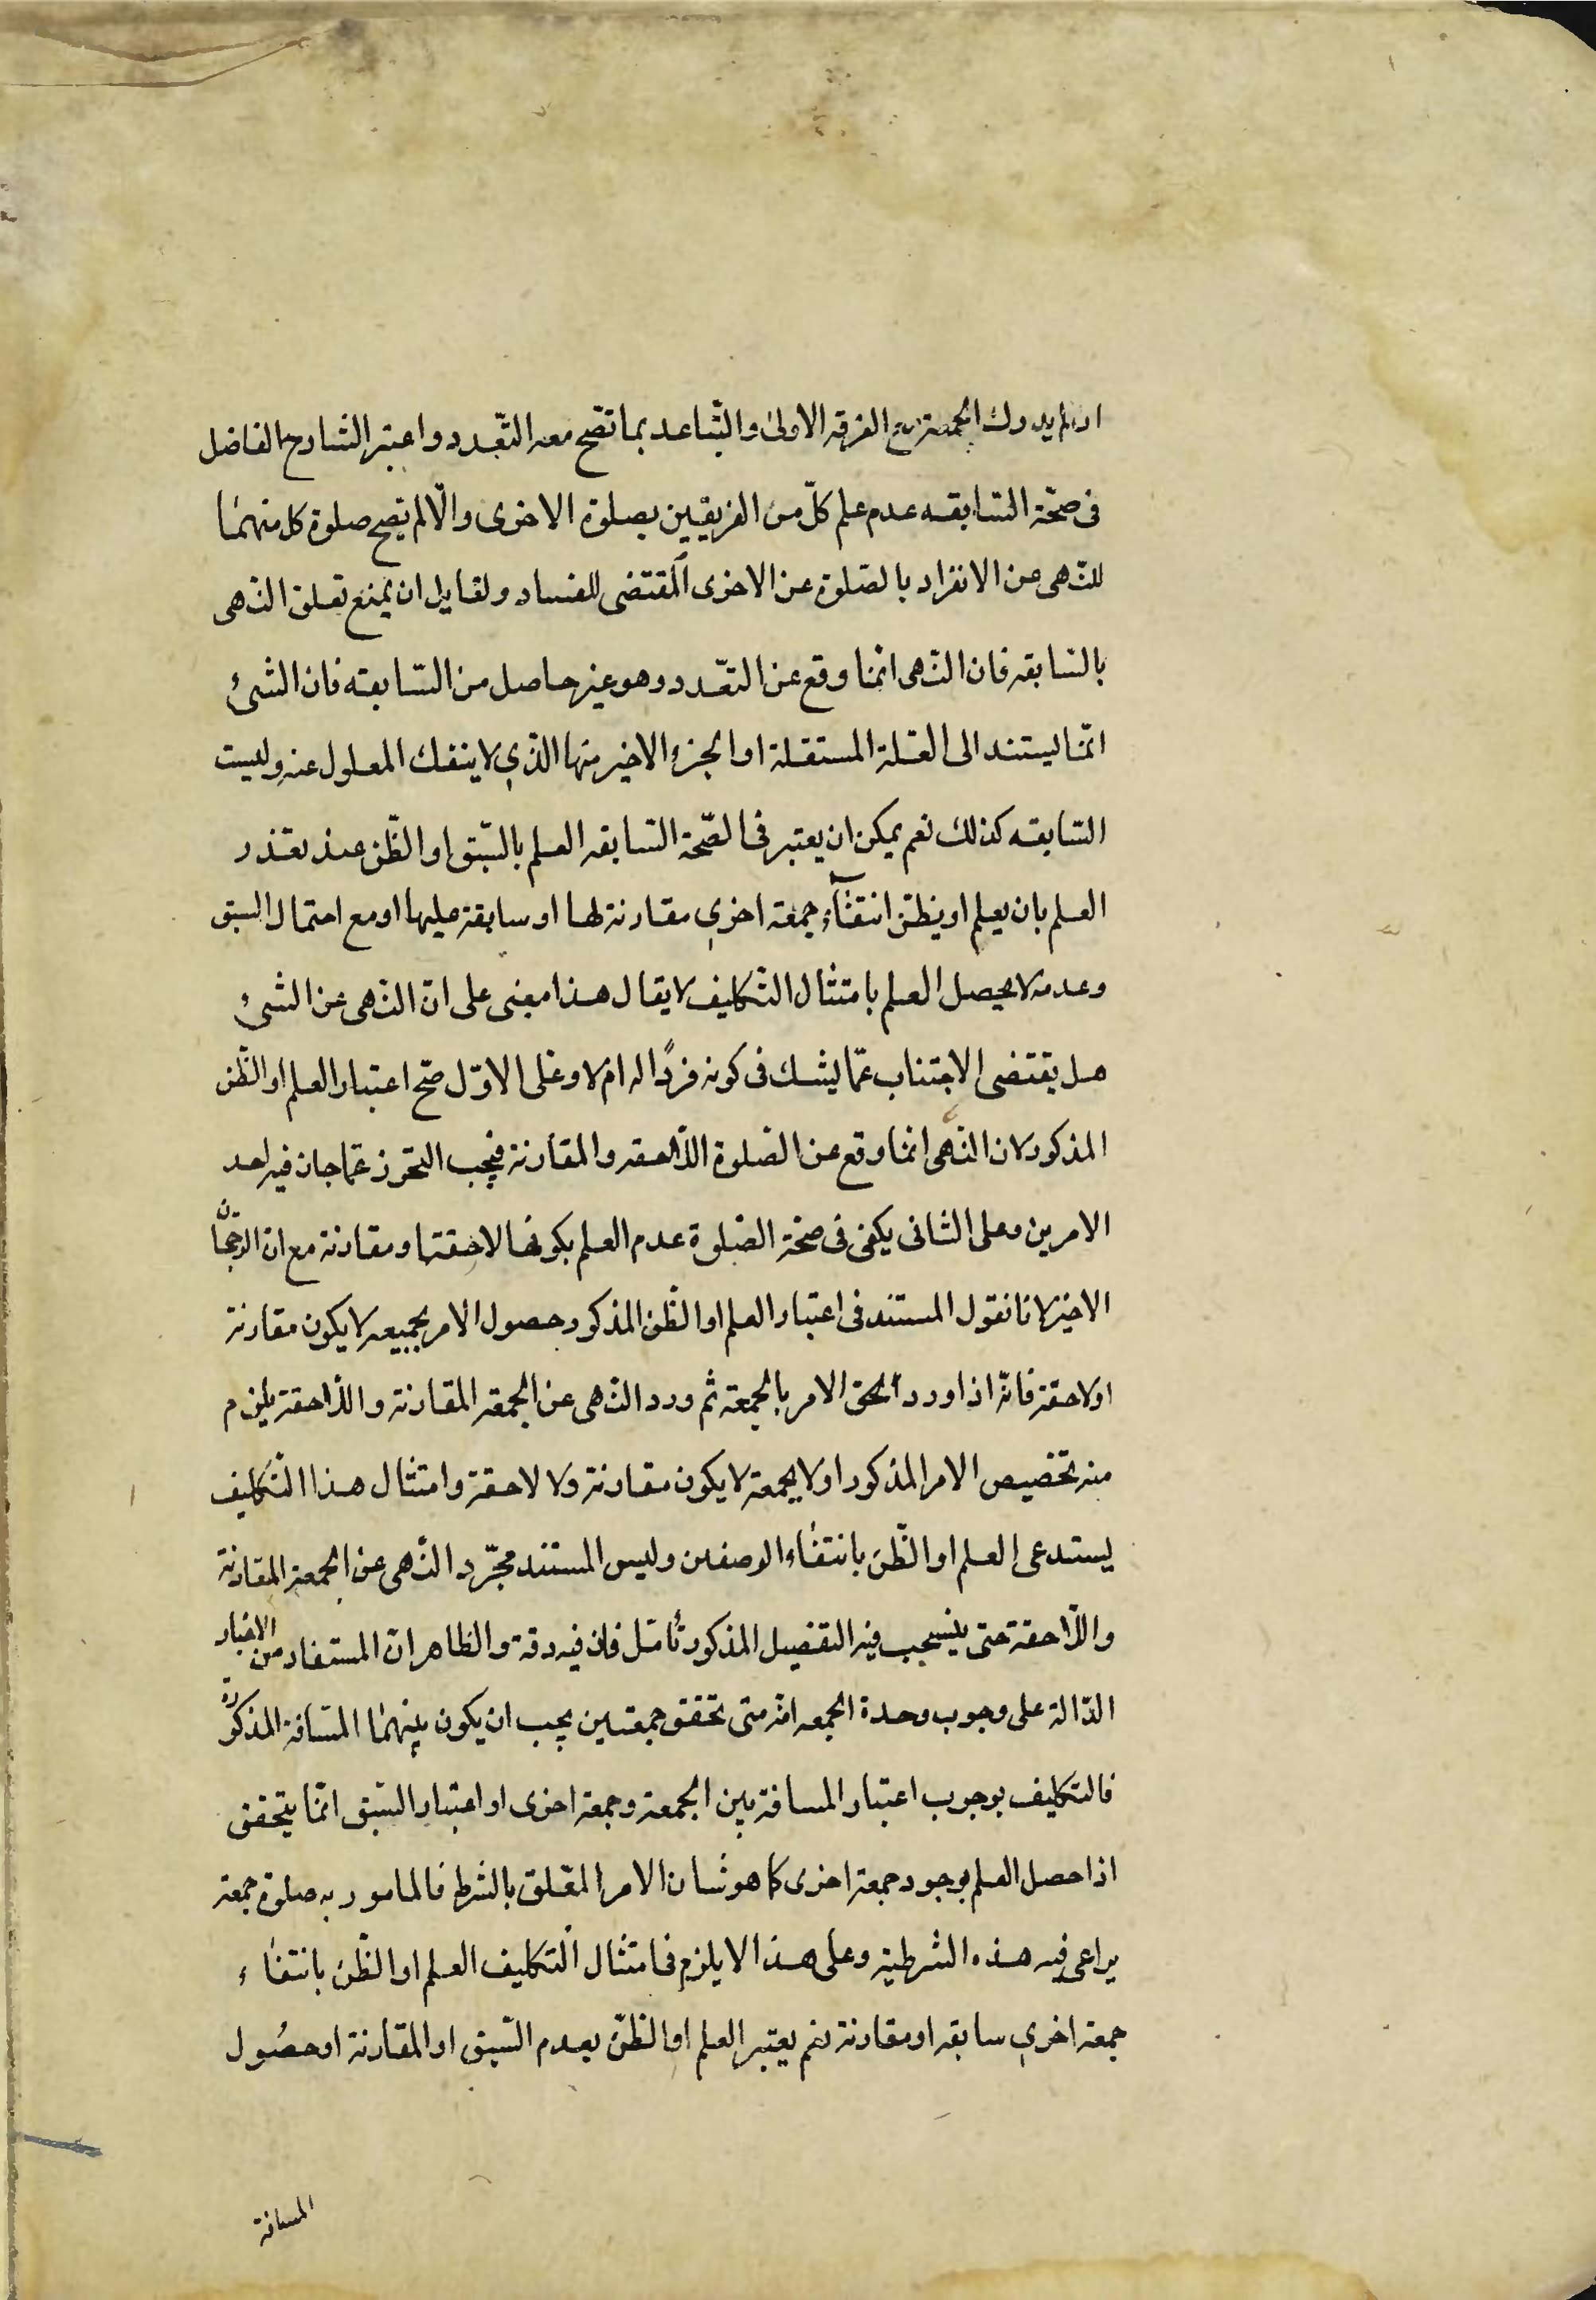 ان لم يدرك الجمعة مع الفرقه الاولى والتباعد بما تصح معه التعدد واعتبر الشارح الفاضل
فى صحّة السّابقه عدم علم كلّ من الفريقين بصلوة الاخرى والّا لم يصح صلوة كل منهما
للنّهى عن الانفراد بالصّلوة عن الاخرى المقتضى للفساد ولقايل ان يمنع تعلق النّهى
بالسّابقه فان النّهى انّما وقع عن التعّدد وهو غير حاصل من السّابقه فان الشئ
انّما يستند الى العّلة المستقلة او الجزء الاخير منها الذّي لا ينفك المعلول عنه وليست
السّابقه كذلك نعم يمكن ان يعتبر فى الصّحة السّابقه العلم بالسّبق او الظّن عند تعذر
العلم بان يعلم او يظنّ انتفآء جمعة اخرى مقارنة لها او سابقة عليها او مع احتمال السبق
وعدمه لا يحصل العلم بامتثال التّكليف لا يقال هذا مبنى على انّ النّهى عن الشئ
هل يقتضى الاجتناب عمّا يشك فى كونه فردًا له ام لا وعلى الاوّل صّح اعتبار العلم او الظّن
المذكور لان النّهى انّما وقع عن الصّلوة اللّاحقه والمقارنة فيجب التحرز عمّا جان فيه احد
الامرين وعلى الثانى يكفى فى صحّة الصّلوة عدم العلم بكونها لاحقتها ومقارنة مع ان الرّجحان
الاخير لانا نقول المستند فى اعتبار العلم او الظّن المذكور حصول الامر بجميعه لا يكون مقارنة
او لاحقة فانّه اذا ورد الحق الامر بالجمعة ثم ورد النّهى عن الجمعة المقارنة واللّاحقة يلزم
منه تخصيص الامر المذكور اولا بجمعة لا يكون مقارنة ولا لاحقة وامتثال هذا التّكليف
يستدعى العلم او الظّن بانتفاء الوصفين وليس المستند مجّرد النّهى عن الجمعة المقارنة
واللّاحقة حتى ينسحب فيه التفصيل المذكور تأمّل فان فيه دقة والظاهر انّ المستفاد من الاخبار
الدّالة على وجوب وحدة الجمعه انّه متى تحقق جمعتين يجب ان يكون بينهما المسافة المذكورة
فالتكليف بوجوب اعتبار المسافة بين الجمعة وجمعة اخرى او اعتبار السّبق انّما يتحقق
اذا حصل العلم بوجود جمعة اخرى كما هو شان الامر المعّلق بالشرط فالمامور به صلوة جمعة
يراعى فيه هذه الشرطية وعلى هذا لا يلزم فى امتثال التّكليف العلم او الظّن بانتفاء
جمعة اخرى سابقه او مقارنة نعم يعتبر العلم او الظّن بعدم السّبق او المقارنة او حصُول
المسافة